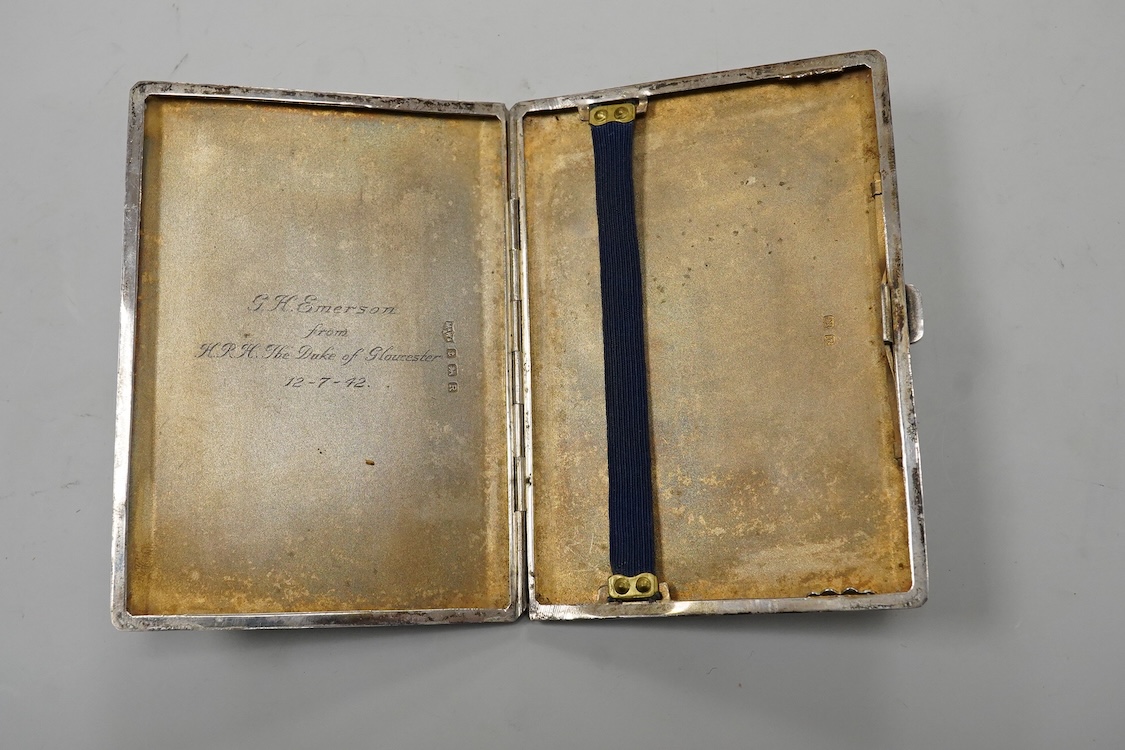 G.H.Emerson
from
H.R.H. The Duke of Gloucester
12-7-42.